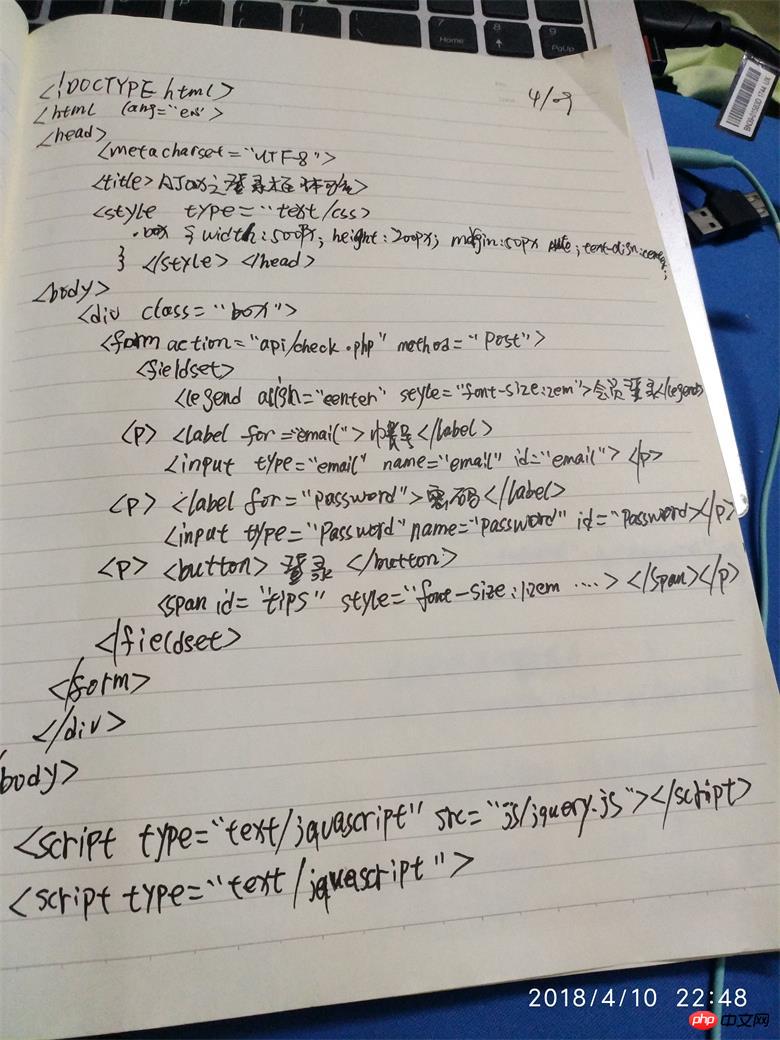 4/9
<!DOCTYPE html>
<html lang="en">
<head>
<meta charset="UTF-8">
<title>AJax之登录框体验</title>
<style type="text/css>
.box { width:500px; height:200px; margin:50px auto; text-align:center;
} </style> </head>
<body>
<div class="box">
<form action="api/check.php" method="Post">
<fieldset>
<legend align="center" style="font-size:2em">会员登录</legend>
<p> <label for="email">帐号</label>
<input type="email" name="email" id="email"> </p>
<p> <label for="password">密码</label>
<input type="Password" name="password" id="Password></p>
<p> <button> 登录 </button>
<span id="tips" style="font-size:1.2em ....> </span></p>
</fieldset>
</form>
</div>
body>
<script type="text/javascript" src="js/jquery.js"></script>
<script type="text/javascript">
Home
PgUp
7
8
9
2018/4/10 22:48
php 中文网